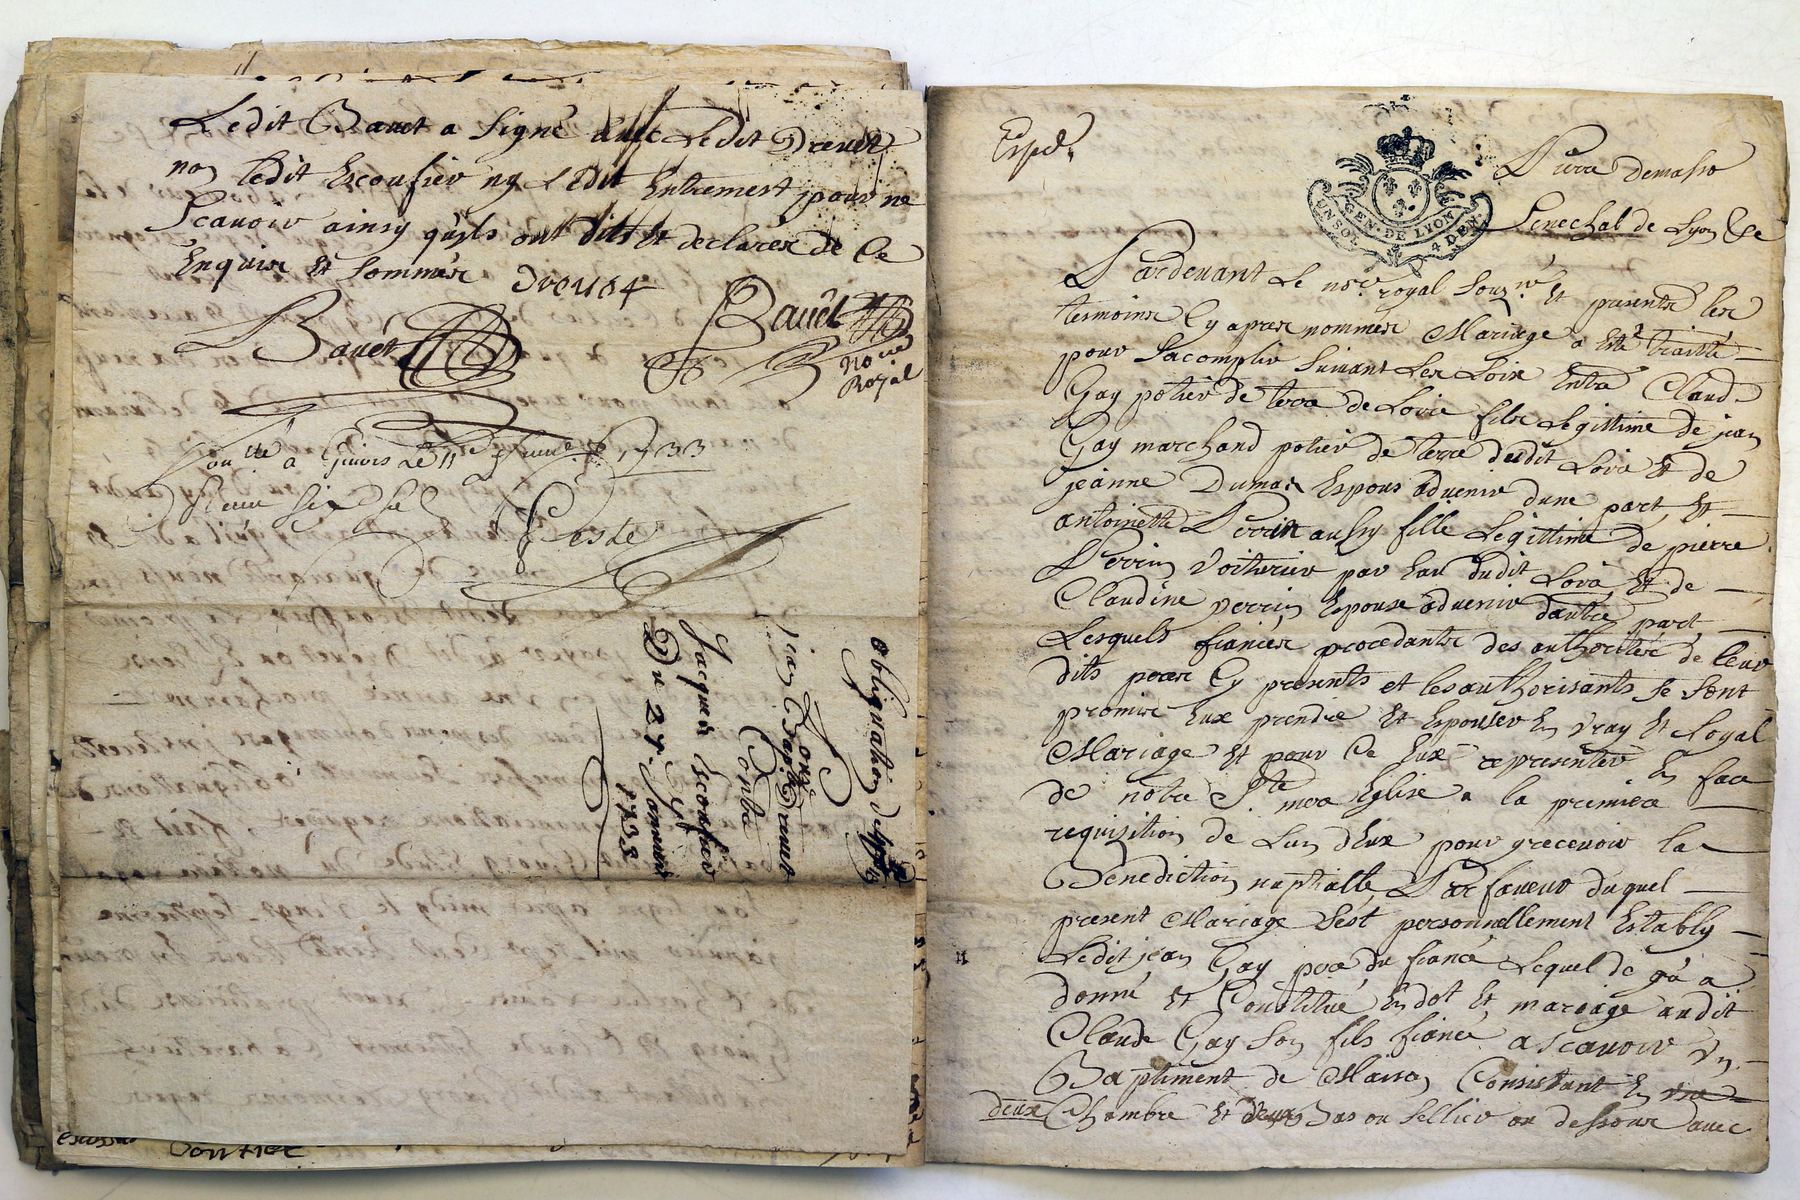 Ledit Bauet a signé avec Ledit Dreuet
non ledit Escoufier ny Ledit Entremest pour ne
Scauoir ainsy quils ont dits et declarer de Ce
Enquis Et Sommér Dreuet
Bauet
Bauet
No.re
Royal
a Giuors Le 11e 1733
Reçeu six
Obliguation de
pour
jean Bapte Dreuet
Contre
Jacques Escoufier
Du 27 Januier
1733
Exped.
Pierre Demasso
Senechal de Lyon &c
GEN. DE LYON
UN SOL 4 DEN.
Pardeuant Le nore royal Souzné Et presents les
tesmoins Cy apres nommer Mariage a Esté traitté
pour Sacomplir Suiuant Les Loix Entre Claude
Gay potier de terre de Loire fils Legittime de jean
Gay marchand potier de terre dudit Loire Et de
jeanne Dumas Espoux aduenir dune part, Et
antoinette Perrin aussy fille Legittime de pierre
Perrin Voiturier par Eau dudit Loire Et de
Claudine perrin Espouse aduenir dautre part
Lesquels fiancér procedants des authoritér de leur
dits perer Cy presents et les authorisants se sont
promis Eux prendre Et Espouser En vray Et Loyal
Mariage Et pour Ce Eux representer En face
de notre Ste mere Eglise a la premiere
requisition de Lun dEux pour y receuoir la
Benediction nuptialle, Par faueur duquel
present Mariage Sest personnellement Estably
Ledit jean Gay pere du fiancé Lequel de gré a
donné Et Constitué En dot Et mariage audit
Claude Gay Son fils fiancé ascauoir Un
Bastiment de Maison Consistant En
deux Chambre Et deux Bas ou Sellier au dessoux auec